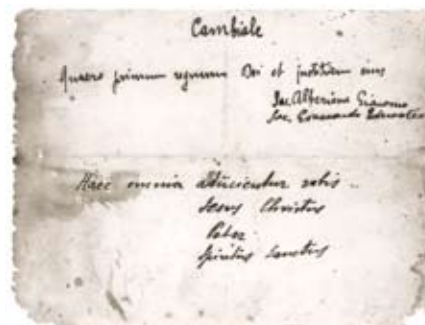 Cambiale
Quaero primum regnum Dei et justitiam eius
Sac. Alberione Giacomo
Sac.
Haec omnia adiicientur vobis
Jesus Christus
Pater
Spiritus Sanctus